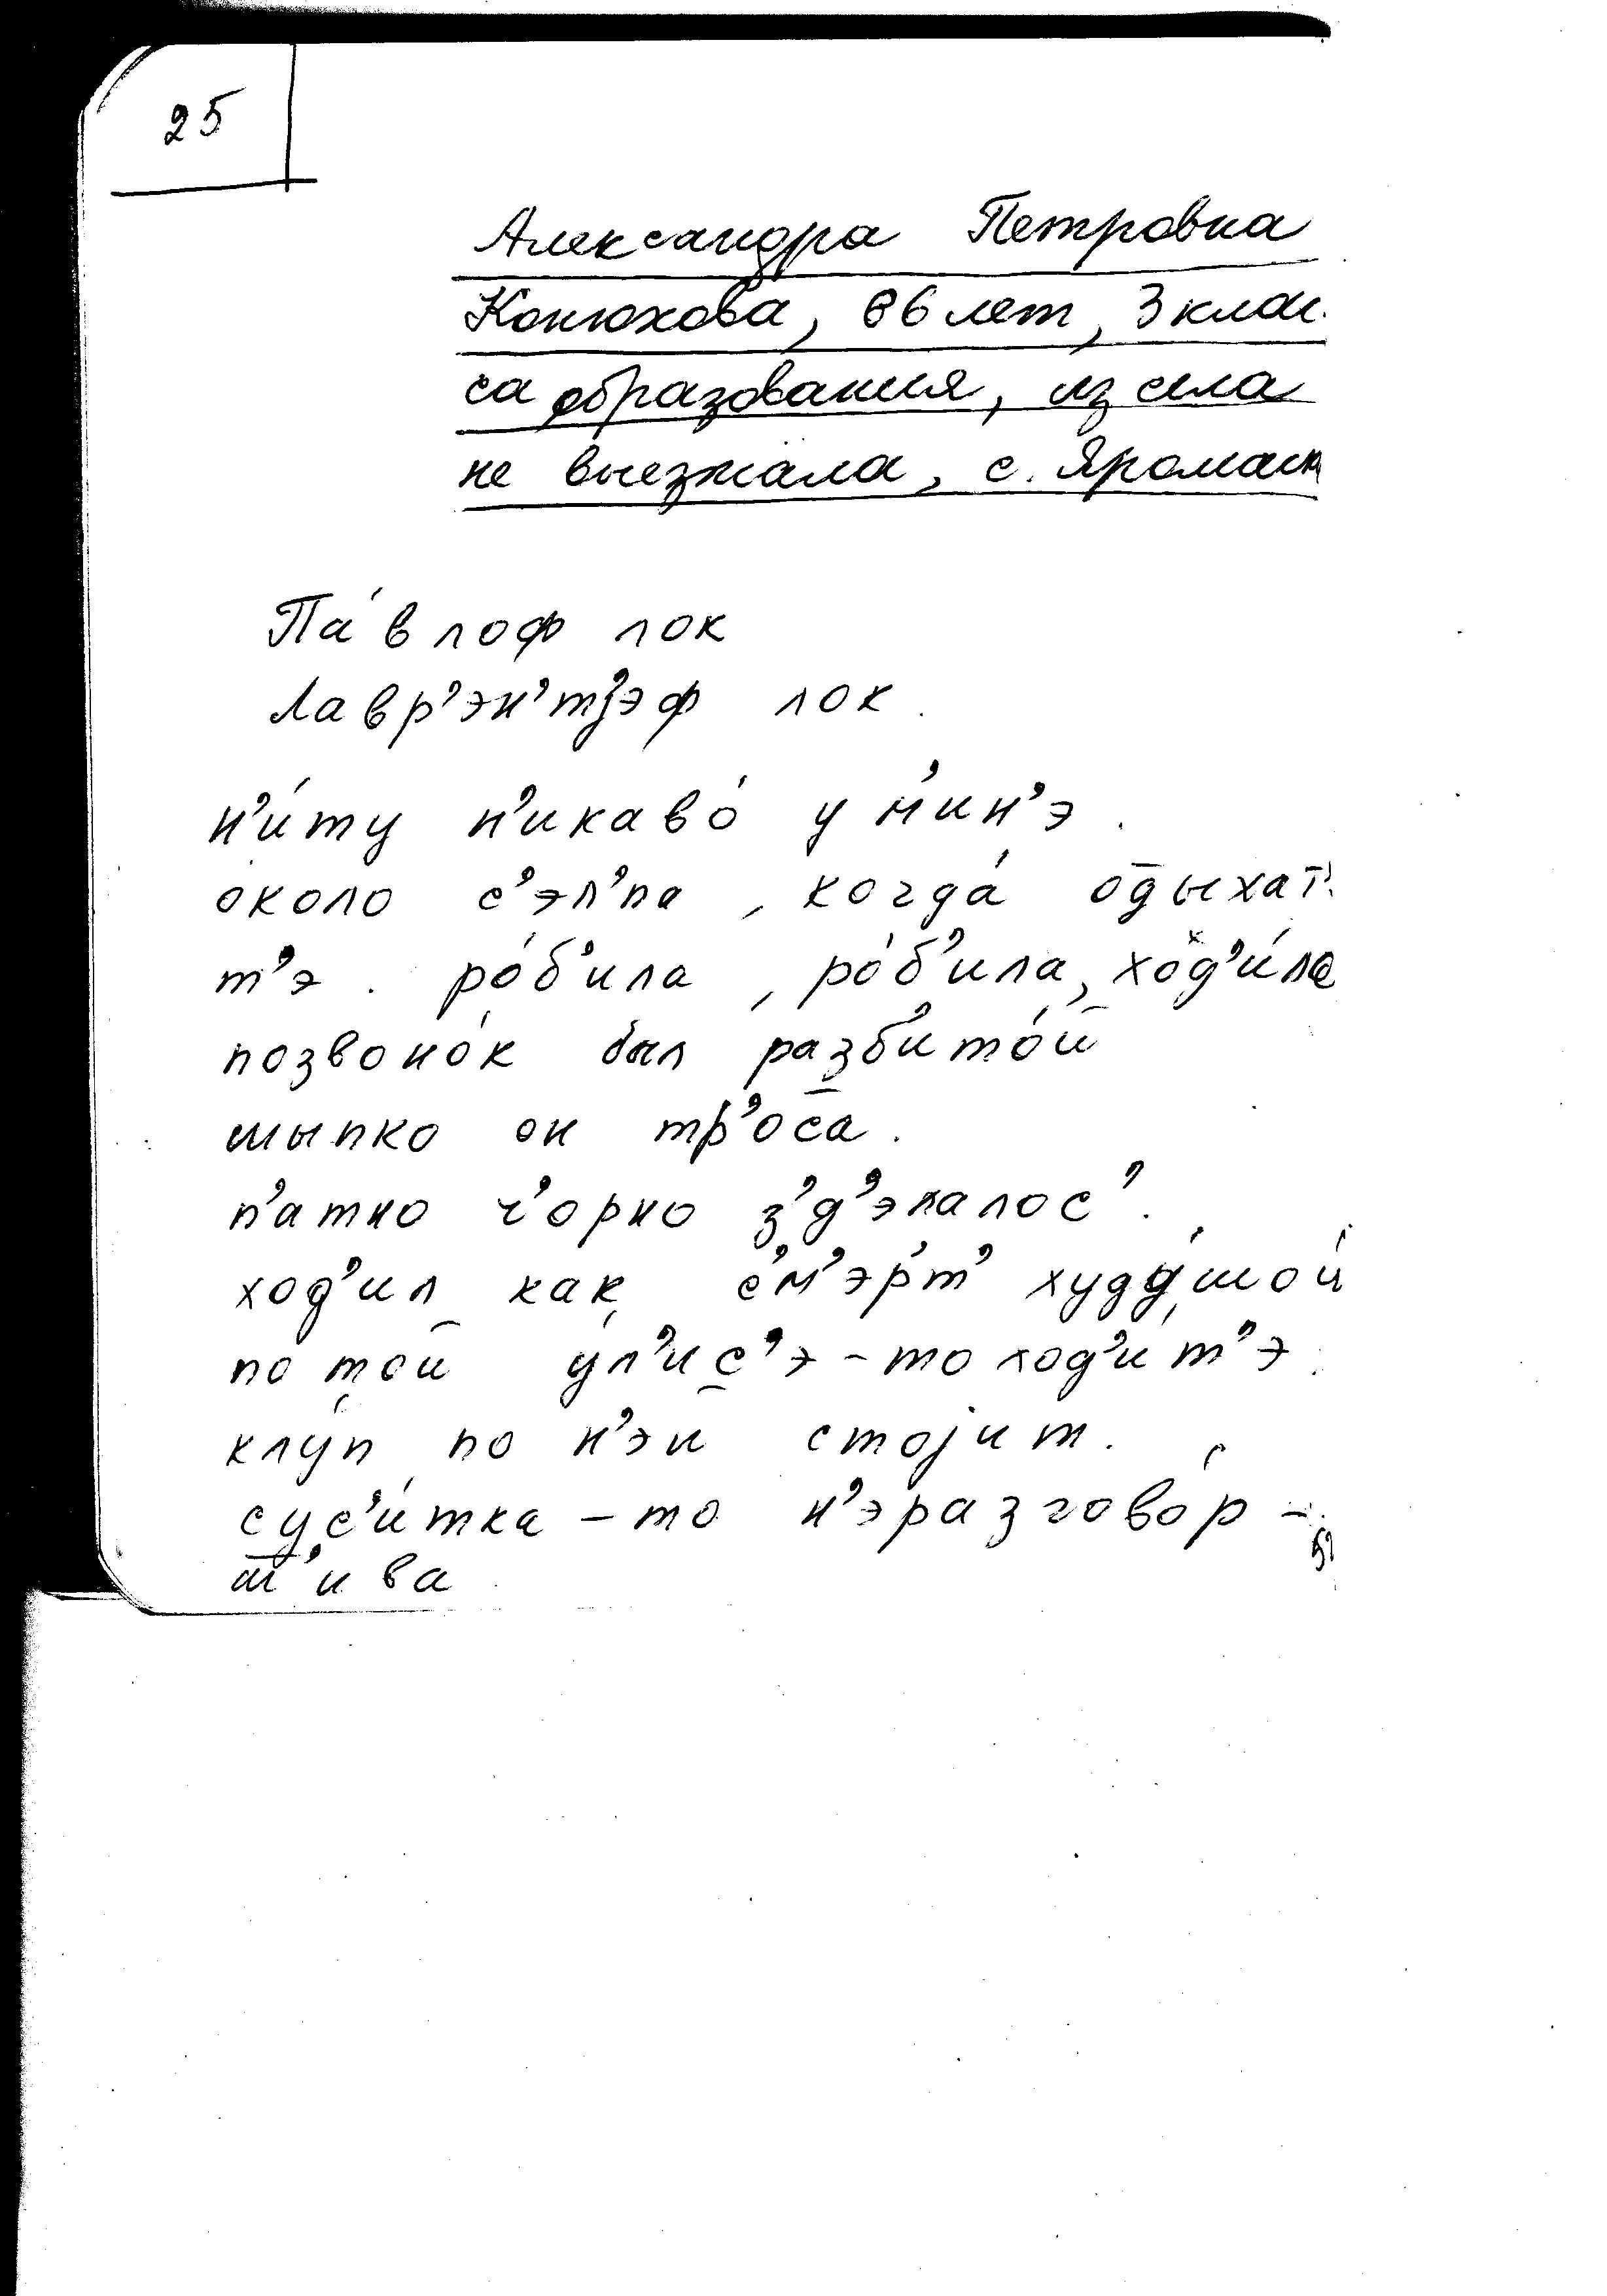 25
Александра Петровна
Конюхова, 86 лет, 3 клас-
са образования, из села
не выезжала, с.
Па́влоф лок
Лавр’э́н’тjэф лок.
н’и́ту н’икаво́ у м’ин’э.
около с’эл’па, когда́ од̄ыхат’
т’э. ро́б’ила, ро́б’ила, ход’и́ла
позвоно́к был разб’ито́й
шыпко он тр’о́с̄а.
п’атно ч’орно з’д’элалос’.
ход’ил как с’м’э́р’т’ худу́шшой
по той у́л’ис’э-то ход’и́т’э.
клуп по н’эй стоjит.
сус’и́тка-то н’эразгово́р-
ш̄’ива